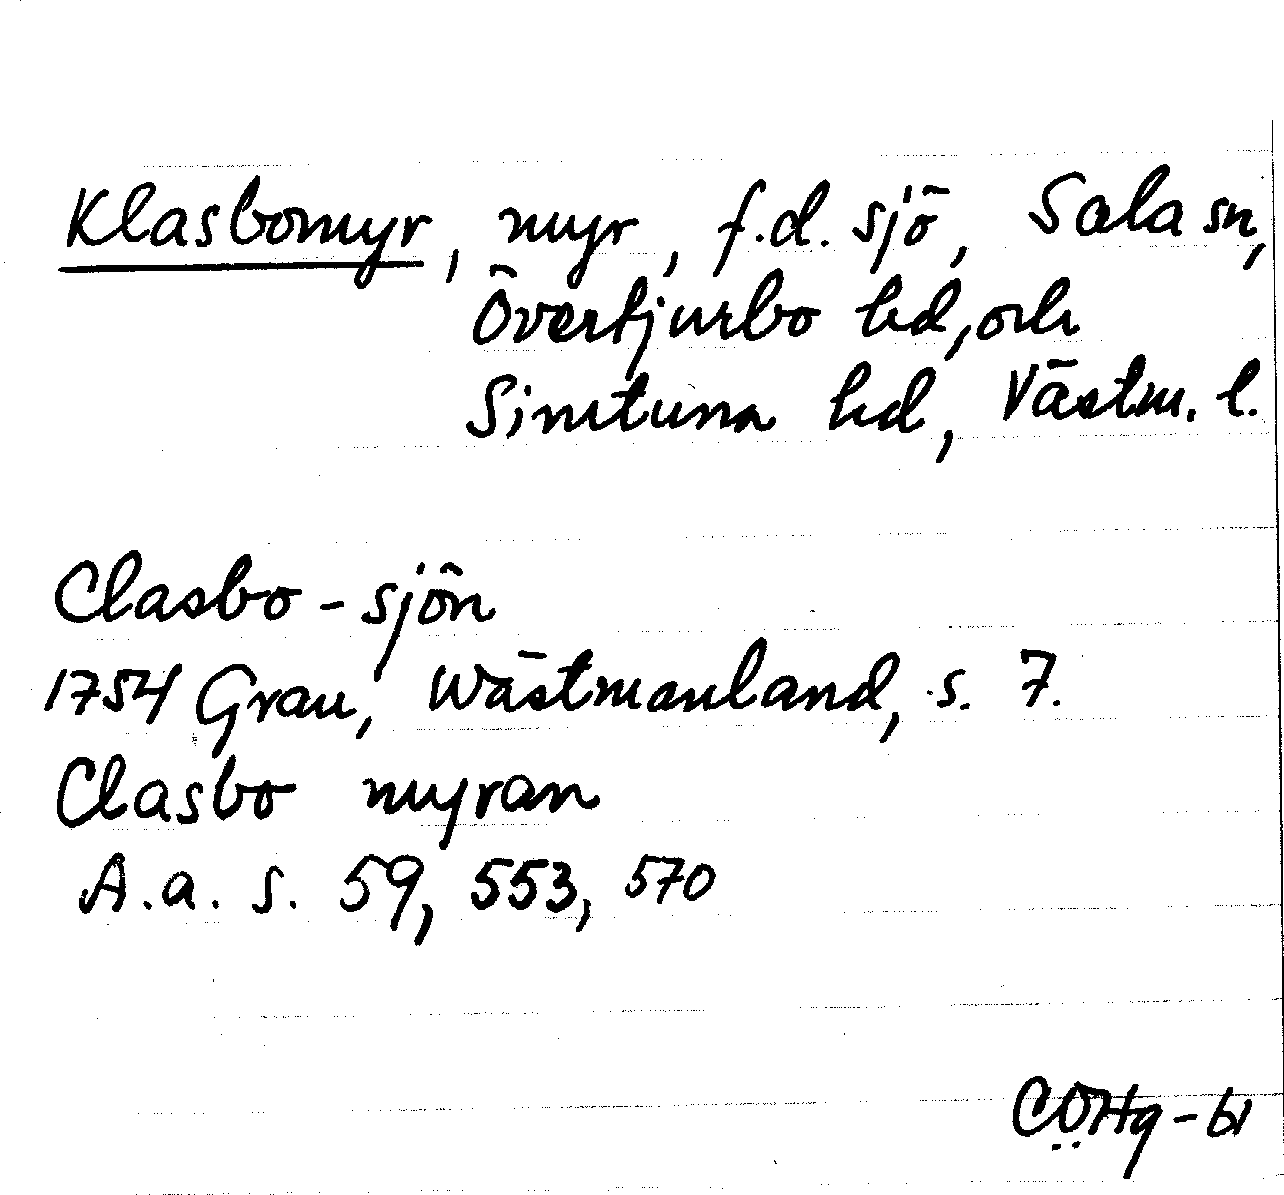 Klasbomyr, myr, f.d. sjö, Sala sn,
Övertjurbo hd, och
Simtuna hd, Västm. l.
Clasbo-sjön
1754 Grau, Wästmanland, s. 7.
Clasbo myran
A.a. s. 59, 553, 570
CÖHg-61